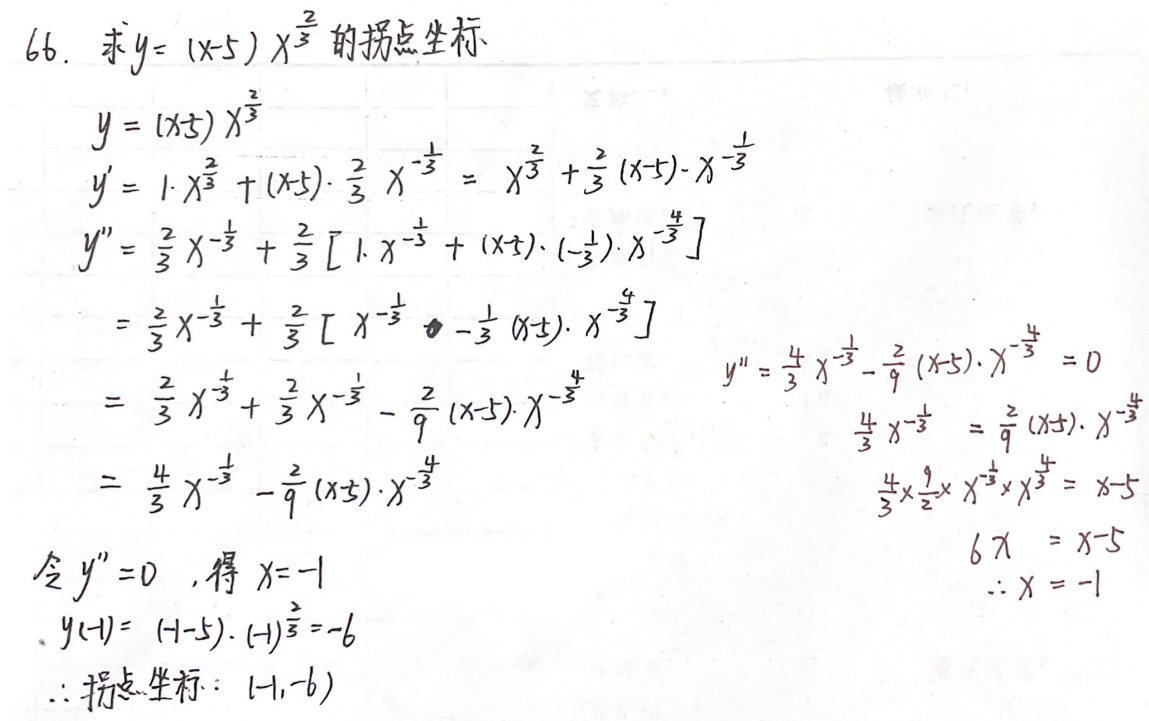 66. 求y = (x-5) x^{\frac{2}{3}} 的拐点坐标
y = (x-5) x^{\frac{2}{3}}
y' = 1·x^{\frac{2}{3}} + (x-5)·\frac{2}{3} x^{-\frac{1}{3}} = x^{\frac{2}{3}} + \frac{2}{3} (x-5)·x^{-\frac{1}{3}}
y'' = \frac{2}{3} x^{-\frac{1}{3}} + \frac{2}{3} [ 1·x^{-\frac{1}{3}} + (x-5)·(-\frac{1}{3})·x^{-\frac{4}{3}} ]
= \frac{2}{3} x^{-\frac{1}{3}} + \frac{2}{3} [ x^{-\frac{1}{3}} - \frac{1}{3} (x-5)·x^{-\frac{4}{3}} ]
= \frac{2}{3} x^{-\frac{1}{3}} + \frac{2}{3} x^{-\frac{1}{3}} - \frac{2}{9} (x-5)·x^{-\frac{4}{3}}
= \frac{4}{3} x^{-\frac{1}{3}} - \frac{2}{9} (x-5)·x^{-\frac{4}{3}}
令 y'' = 0 , 得 x = -1
y(-1) = (-1-5)·(-1)^{\frac{2}{3}} = -6
∴ 拐点坐标: (-1,-6)
y'' = \frac{4}{3} x^{-\frac{1}{3}} - \frac{2}{9} (x-5)·x^{-\frac{4}{3}} = 0
\frac{4}{3} x^{-\frac{1}{3}} = \frac{2}{9} (x-5)·x^{-\frac{4}{3}}
\frac{4}{3} × \frac{9}{2} × x^{-\frac{1}{3}} × x^{\frac{4}{3}} = x-5
6x = x-5
∴ x = -1